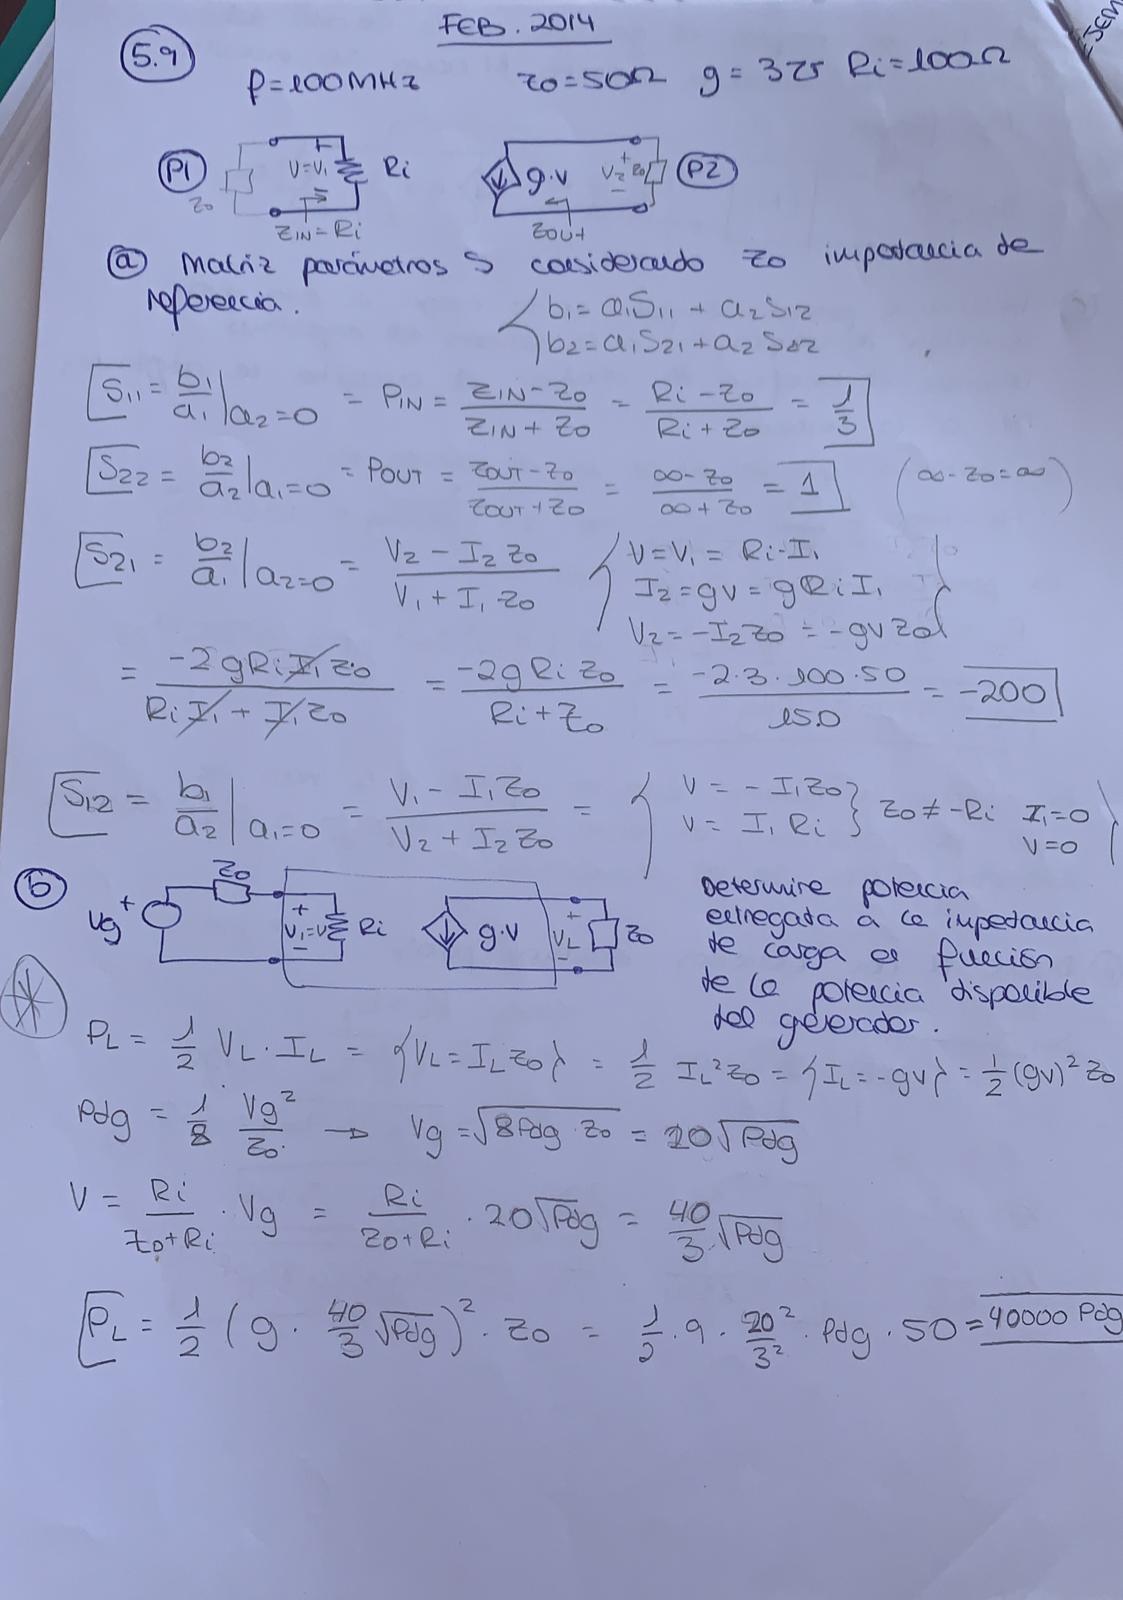 FEB. 2014
EJEM
5.9
f=100MHz Zo=50Ω g=375 Ri=100Ω
P1 Zo V=V1 + Ri ZIN=Ri g·v V2 + − Zo P2 ZOUT
a Matriz parámetros S considerando Zo impedancia de
referencia.
b1=a1S11 + a2S12
b2=a1S21+a2S22
S11 = b1/a1 | a2=0 = ρIN = (ZIN−Zo)/(ZIN+Zo) = (Ri−Zo)/(Ri+Zo) = 1/3
S22 = b2/a2 | a1=0 = ρOUT = (ZOUT−Zo)/(ZOUT+Zo) = (∞−Zo)/(∞+Zo) = 1 (∞−Zo=∞)
S21 = b2/a1 | a2=0 = (V2 − I2Zo)/(V1 + I1Zo) { V=V1 = Ri·I1
I2=gv = gRiI1
V2=−I2Zo = −gvZo }
= (−2gRiI1Zo)/(RiI1 + I1Zo) = (−2gRiZo)/(Ri+Zo) = (−2·3·100·50)/150 = −200
S12 = b1/a2 | a1=0 = (V1 − I1Zo)/(V2 + I2Zo) = { V = −I1Zo
V = I1Ri } Zo≠−Ri I1=0
V=0 }
b Vg + Zo + V1=V − Ri g·v + VL − Zo
Determine potencia
entregada a la impedancia
de carga en función
de la potencia disponible
del generador.
PL = 1/2 VL·IL = {VL=ILZo} = 1/2 IL²Zo = {IL=−gv} = 1/2 (gv)²Zo
Pdg = 1/8 Vg²/Zo → Vg=√(8Pdg·Zo) = 20√Pdg
V = Ri/(Zo+Ri) · Vg = Ri/(Zo+Ri) · 20√Pdg = 40/3 √Pdg
PL = 1/2 (g · 40/3 √Pdg)² · Zo = 1/2 · 9 · 20²/3² · Pdg · 50 = 40000 Pdg